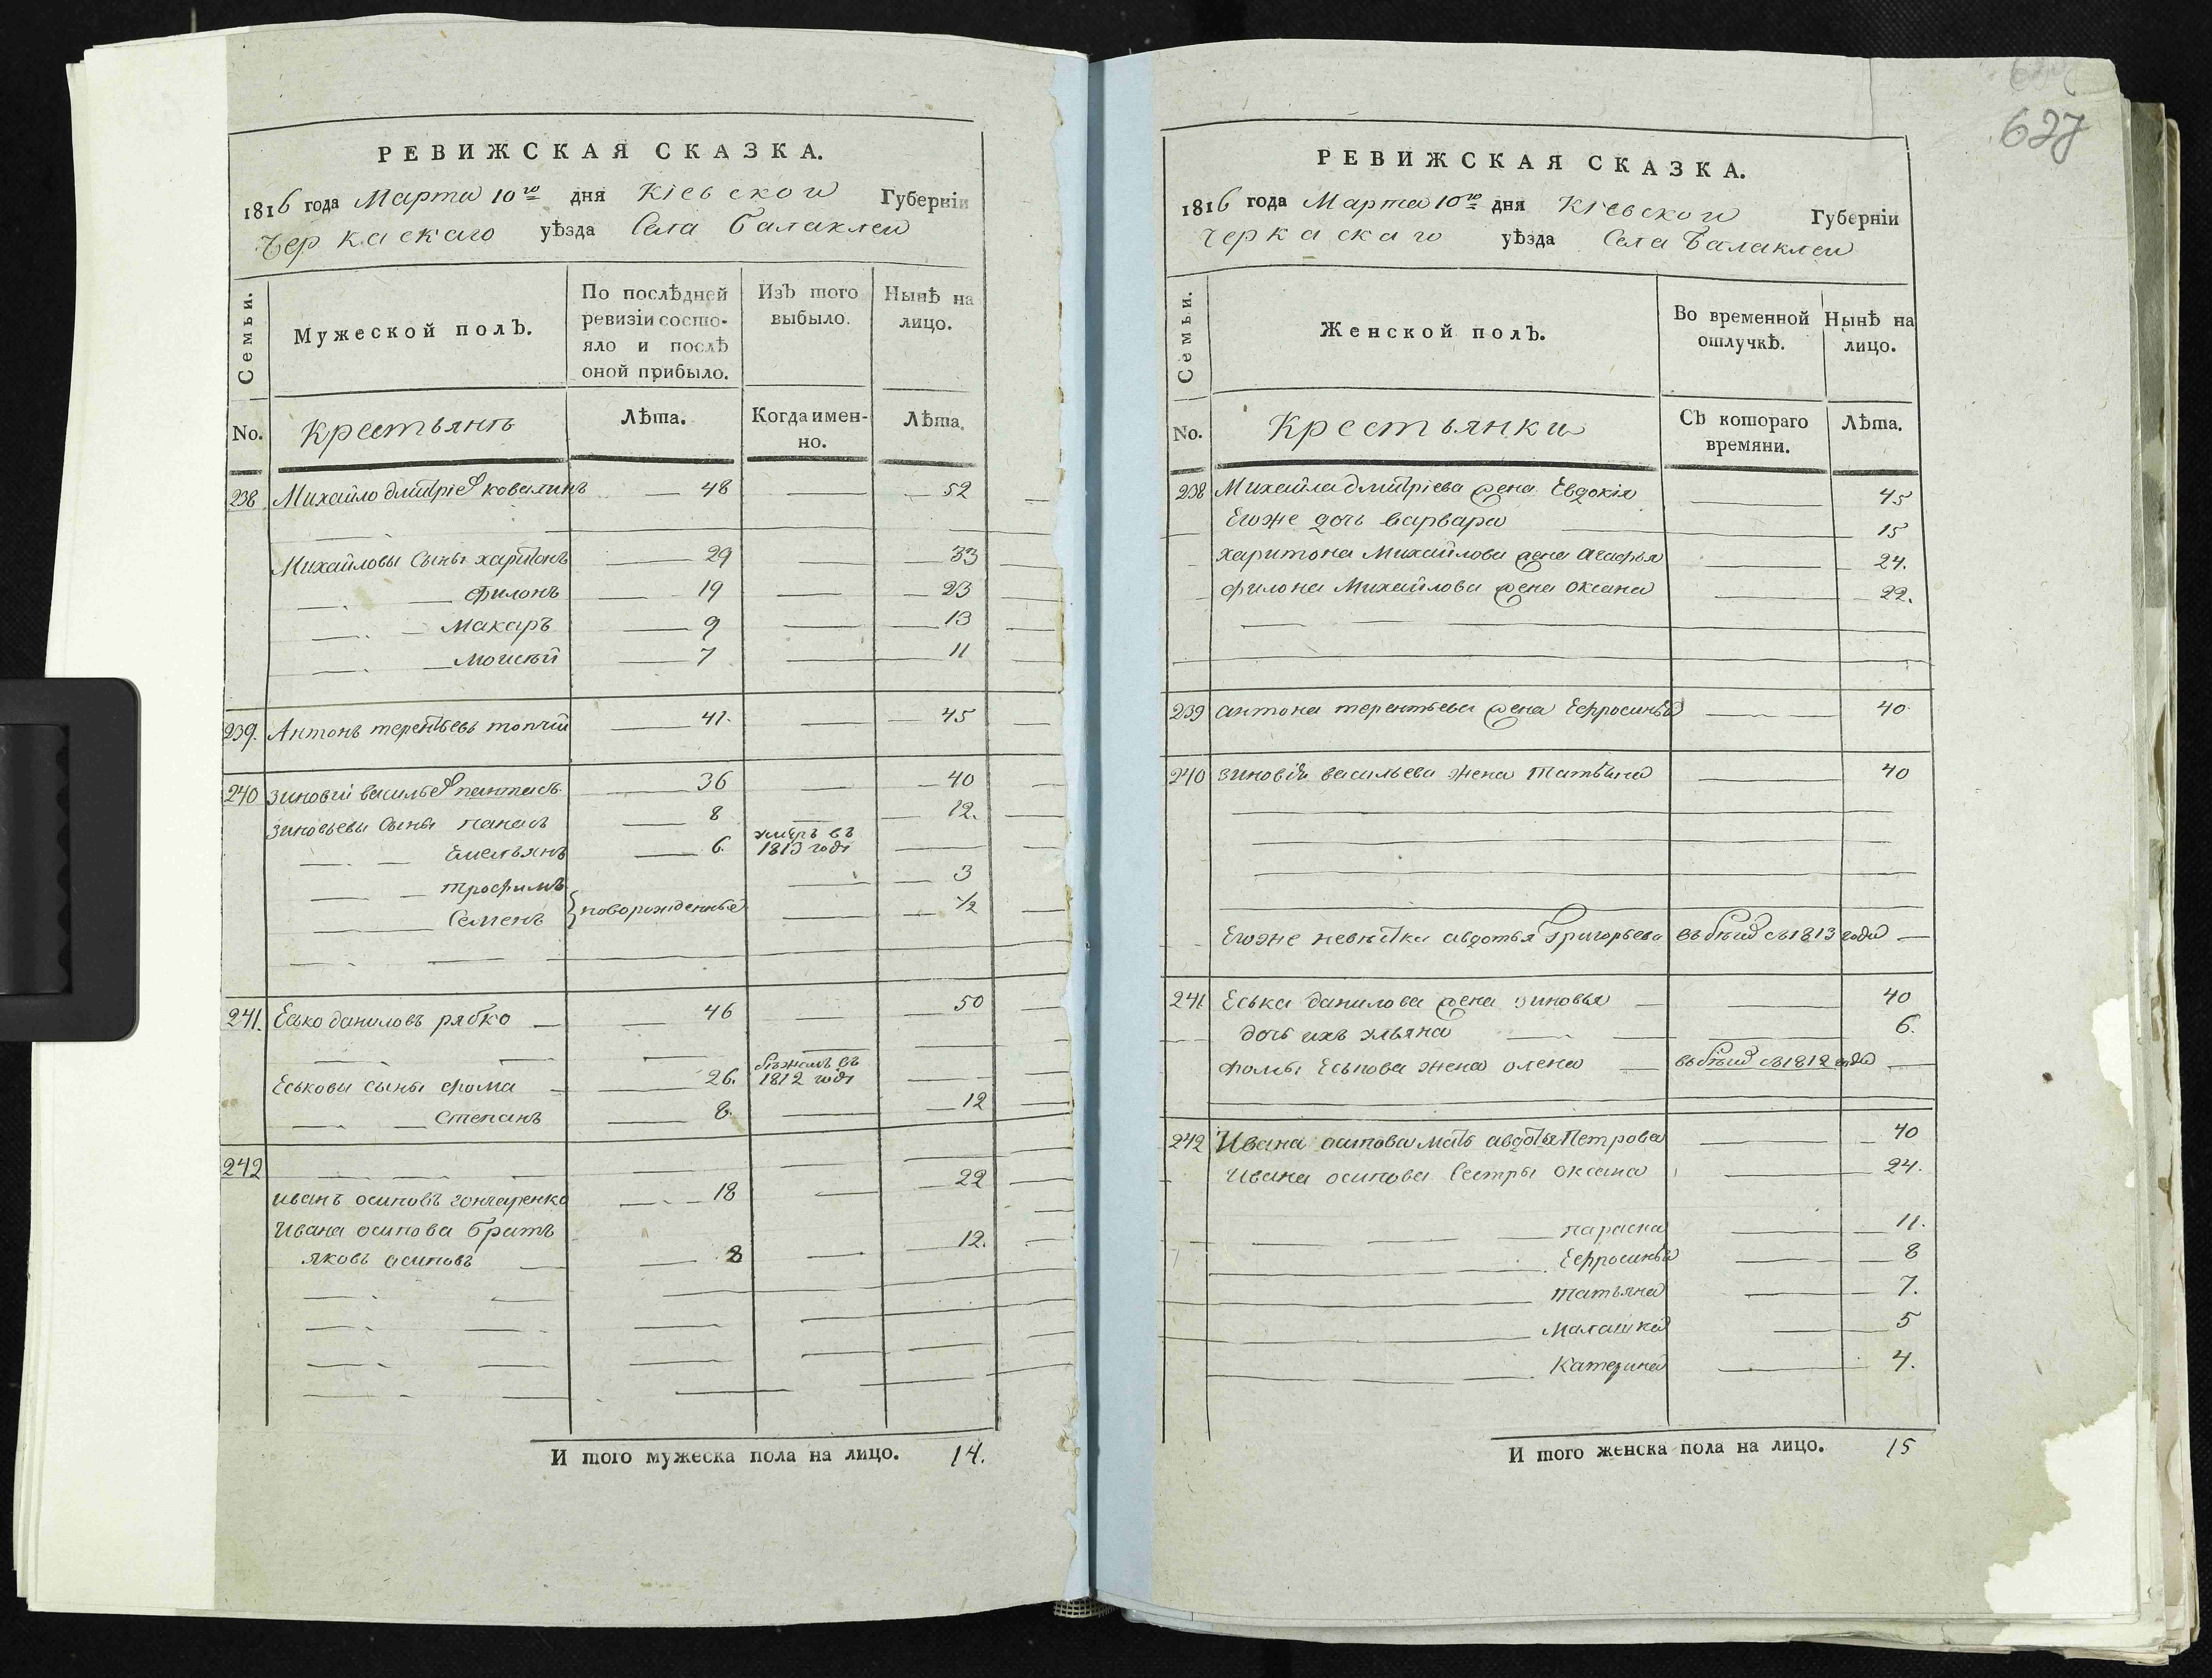 РЕВИЖСКАЯ СКАЗКА.
1816 года Марта 10го дня Кіевской Губерніи
Черкаскаго уѣзда Села Балаклеи
Семьи.
Мужеской полЪ.
По послѣдней ревизіи состояло и послѣ оной прибыло.
ИзЪ того выбыло.
Нынѣ на лицо.
No.
Крестьянъ
Лѣта.
Когда именно.
Лѣта.
238 Михайло дмитріев ковалинъ 48 52
Михайловы Сыны харитонъ 29 33
филонъ 19 23
Макаръ 9 13
Моисей 7 11
239. Антонъ терентьевъ топчій 41. 45
240 зиновій васильев пантасъ 36 40
зиновьевы Сыны панасъ 8 12.
Емельянъ 6. умеръ въ 1813 годѣ
трофимъ 3
Семенъ } новорожденные 1/2
241. Еско даниловъ рябко 46 50
Еськовы сыны фома 26. бѣжалъ въ 1812 годѣ
Степанъ 8. 12
242
иванъ осиповъ гончаренко 18 22
Ивана осипова братъ
яковъ осиповъ 8 12.
И того мужеска пола на лицо. 14.
627
РЕВИЖСКАЯ СКАЗКА.
1816 года Марта 10го дня Кіевской Губерніи
Черкаскаго уѣзда Села Балаклеи
Семьи.
Женской полЪ.
Во временной отлучкѣ.
Нынѣ на лицо.
No.
Крестьянки
СЪ котораго времяни.
Лѣта.
238 Михайла дмитріева жена Евдокія 45
Егоже дочь варвара 15
харитона Михайлова жена агафья 24.
филона Михайлова жена Оксана 22.
239 антона терентьева жена Ефросинья 40
240 зиновія васильева жена татьяна 40
Егоже невѣстка авдотья Григорьева въ бѣгах съ 1813 года
241 Еська данилова жена зиновья 40
дочь ихъ ульяна 6.
фомы Еськова жена олена въ бѣгах съ 1812 года
242 Ивана осипова мать авдотья Петрова 40
Ивана осипова Сестры оксана 24.
параска 11.
Ефросинья 8
татьяна 7.
Малашка 5
Катерина 4.
И того женска пола на лицо. 15